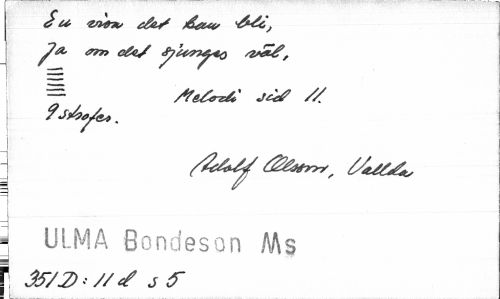 En visa det kan bli,
Ja om det sjunges väl,
9 strofer.
Melodi sid 11.
Adolf Olsson, Vallda
ULMA Bondeson Ms
351 D: 11 d s 5